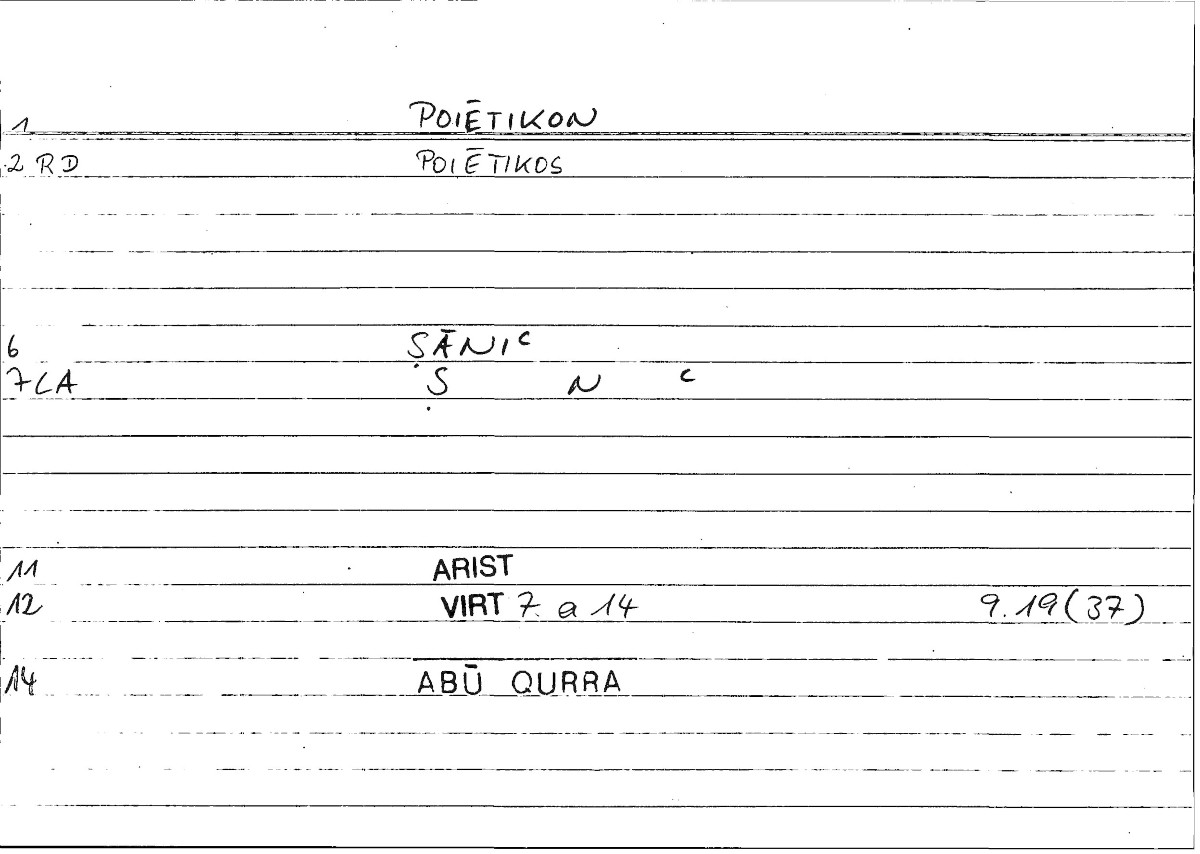 1 POIĒTIKON
2 RD POIĒTIKOS
6 ṢĀNIᶜ
7 CA Ṣ N ᶜ
11 ARIST
12 VIRT 7. a 14 9.19(37)
14 ABŪ QURRA